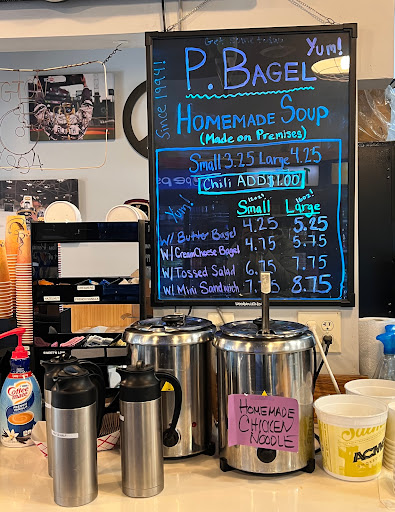 Yum!
P. BAGEL
Since 1994!
HOMEMADE SOUP
(Made on Premises)
Small 3.25 Large 4.25
Chili ADD $1.00
Yum!
Small Large
W/ Butter Bagel 4.25 5.25
W/ Cream Cheese Bagel 4.75 5.75
W/ Tossed Salad 6.75 7.75
W/ Mini Sandwich 7.75 8.75
HOMEMADE
CHICKEN
NOODLE
Coffee
mate
ACME